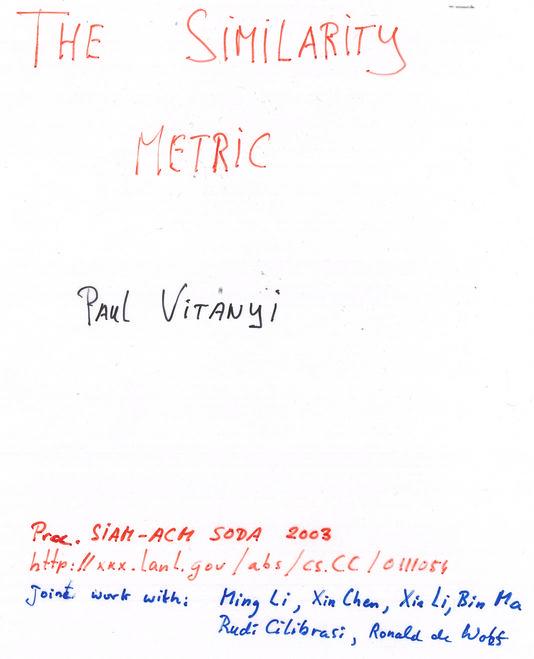 THE SIMILARITY
METRIC
PAUL VITANYI
Proc. SIAM-ACM SODA 2003
http://xxx.lanl.gov/abs/cs.CC/0111054
Joint work with: Ming Li, Xin Chen, Xin Li, Bin Ma
Rudi Cilibrasi, Ronald de Wolf